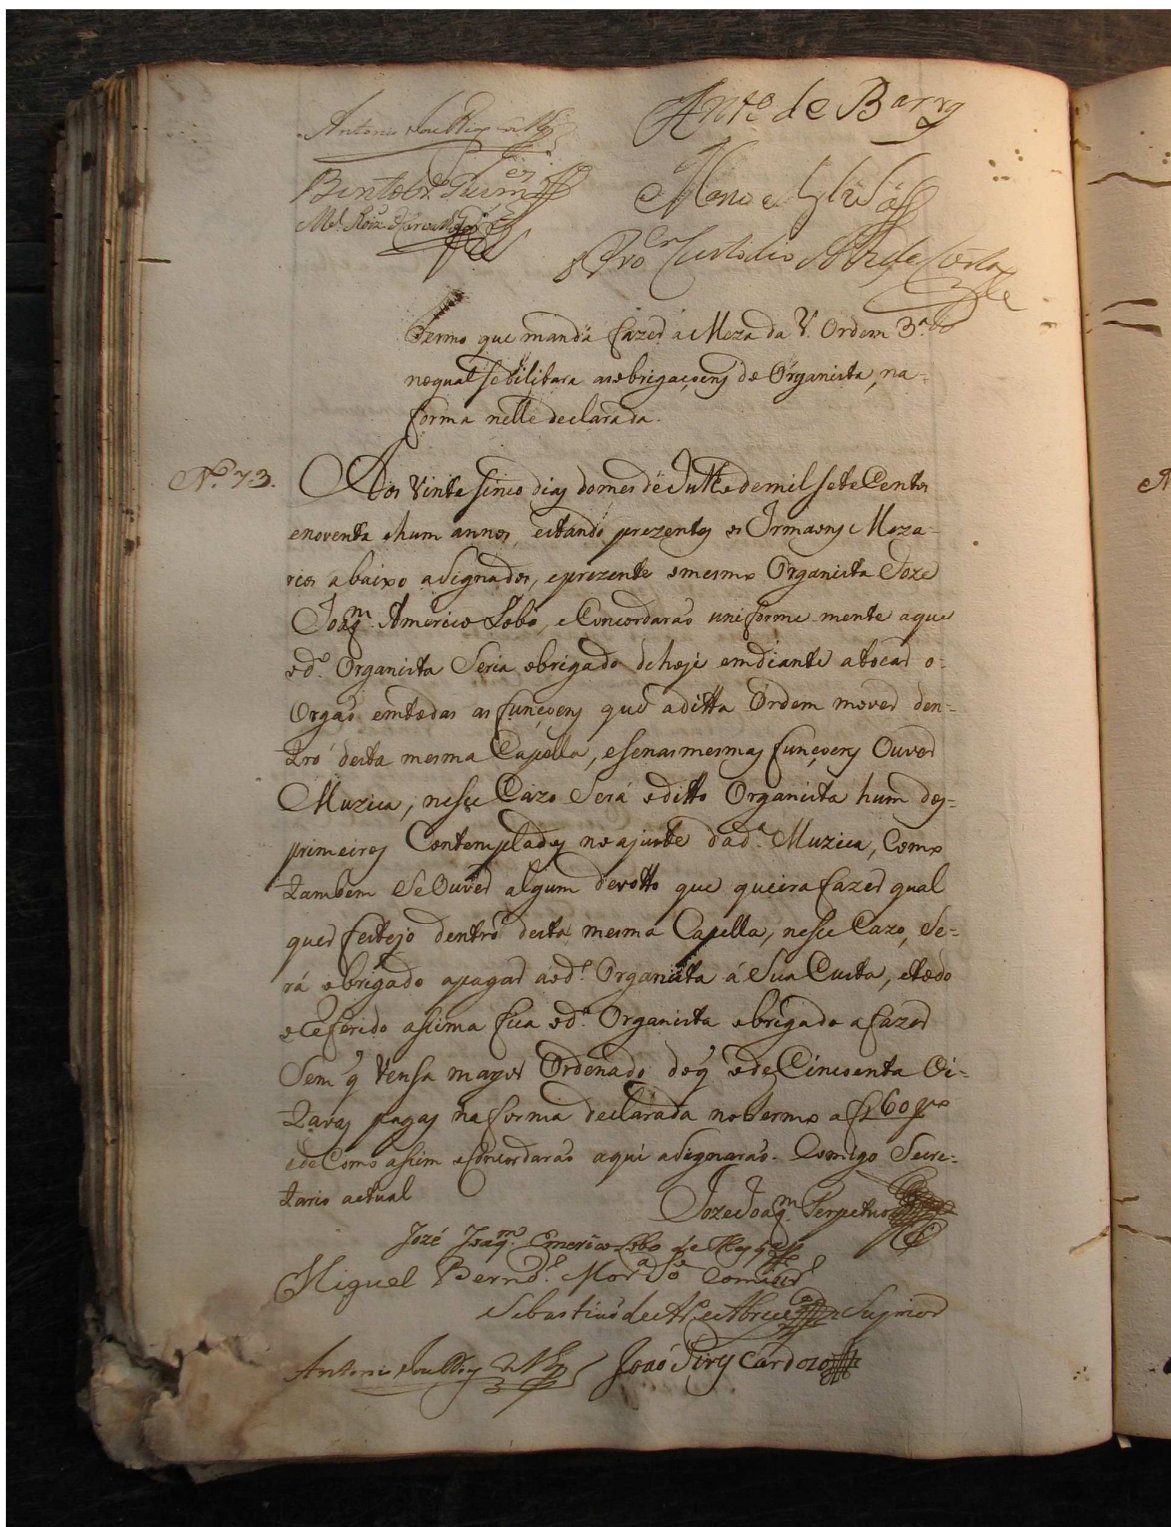 Antonio
Ant.o de Barros
Bento
Manoel
Custodio
Termo que manda fazer a Meza da V. Ordem 3.a
noqual se bilitara as obrigaçoens do Organista, na-
forma nelle declarada.
N.o 73.
Aos Vinte sinco dias domes de Julho demil sete Centos
enoventa ehum annos, estando prezentes os Irmaons Meza-
rios abaixo asignados, eprezente omesmo Organista Joze
Joaq.m Americo Lobo, eConcordaraõ uniforme mente aque
od.o Organista Seria obrigado dehoje emdiante atocar o-
Orgaõ emtodas as funçoens que aditta Ordem mover den-
tro desta mesma Capella, esenasmesmas funçoens Ouver
Muzica, nesse Cazo Será oditto Organista hum dos-
primeiros Contemplados noajuste dad.a Muzica, Como
tambem Se Ouver algum devotto que queira fazer qual
quer festejo dentro desta mesma Capella, nesse Cazo, Se-
rá obrigado apagar aod.o Organista á Sua Custa, etodo
oReferido asima fica od.o Organista obrigado afazer
Sem q̃ Vensa mayor Ordenado doq̃ odeCincoenta Oi-
tavas pagas na forma declarada notermo a f 160
edeComo assim oConcordaraõ aqui asignaraõ. Comigo Secre-
tario actual
Joze Joaq.m Serpetuo
José Joaq.m Emerico Lobo de Mesq.ta
Miguel Bern.do
Sebastiaõ de Abreu
Antonio
João Pires Cardozo